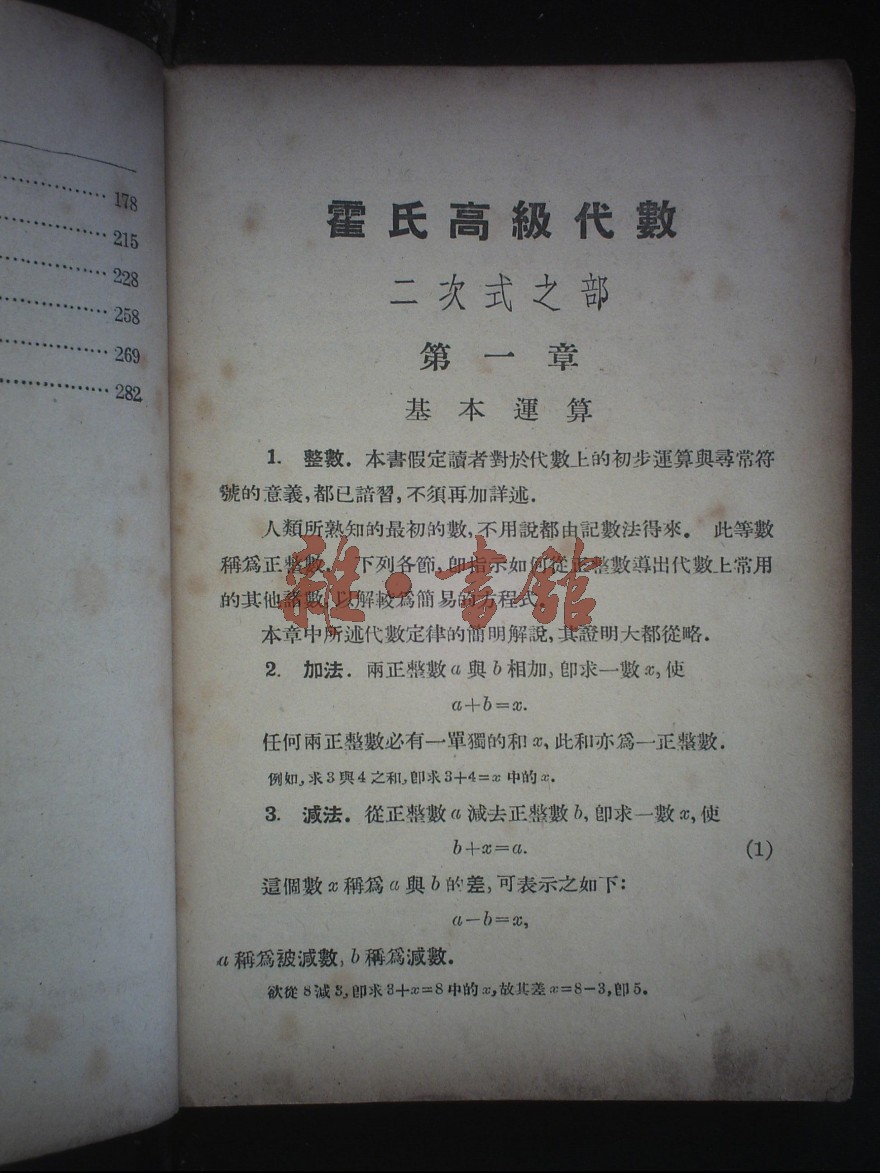 178
215
228
258
269
282
霍氏高級代數
二次式之部
第一章
基本運算
1. 整數. 本書假定讀者對於代數上的初步運算與尋常符
號的意義,都已諳習,不須再加詳述.
人類所熟知的最初的數,不用說都由記數法得來. 此等數
稱爲正整數. 下列各節,卽指示如何從正整數導出代數上常用
的其他諸數,以解較爲簡易的方程式.
本章中所述代數定律的簡明解說,其證明大都從略.
2. 加法. 兩正整數 a 與 b 相加,卽求一數 x,使
a+b=x.
任何兩正整數必有一單獨的和 x,此和亦爲一正整數.
例如,求 3 與 4 之和,卽求 3+4=x 中的 x.
3. 減法. 從正整數 a 減去正整數 b,卽求一數 x,使
b+x=a. (1)
這個數 x 稱爲 a 與 b 的差,可表示之如下:
a−b=x,
a 稱爲被減數, b 稱爲減數.
欲從 8 減 3,卽求 3+x=8 中的 x,故其差 x=8−3,卽 5.
雜·書館